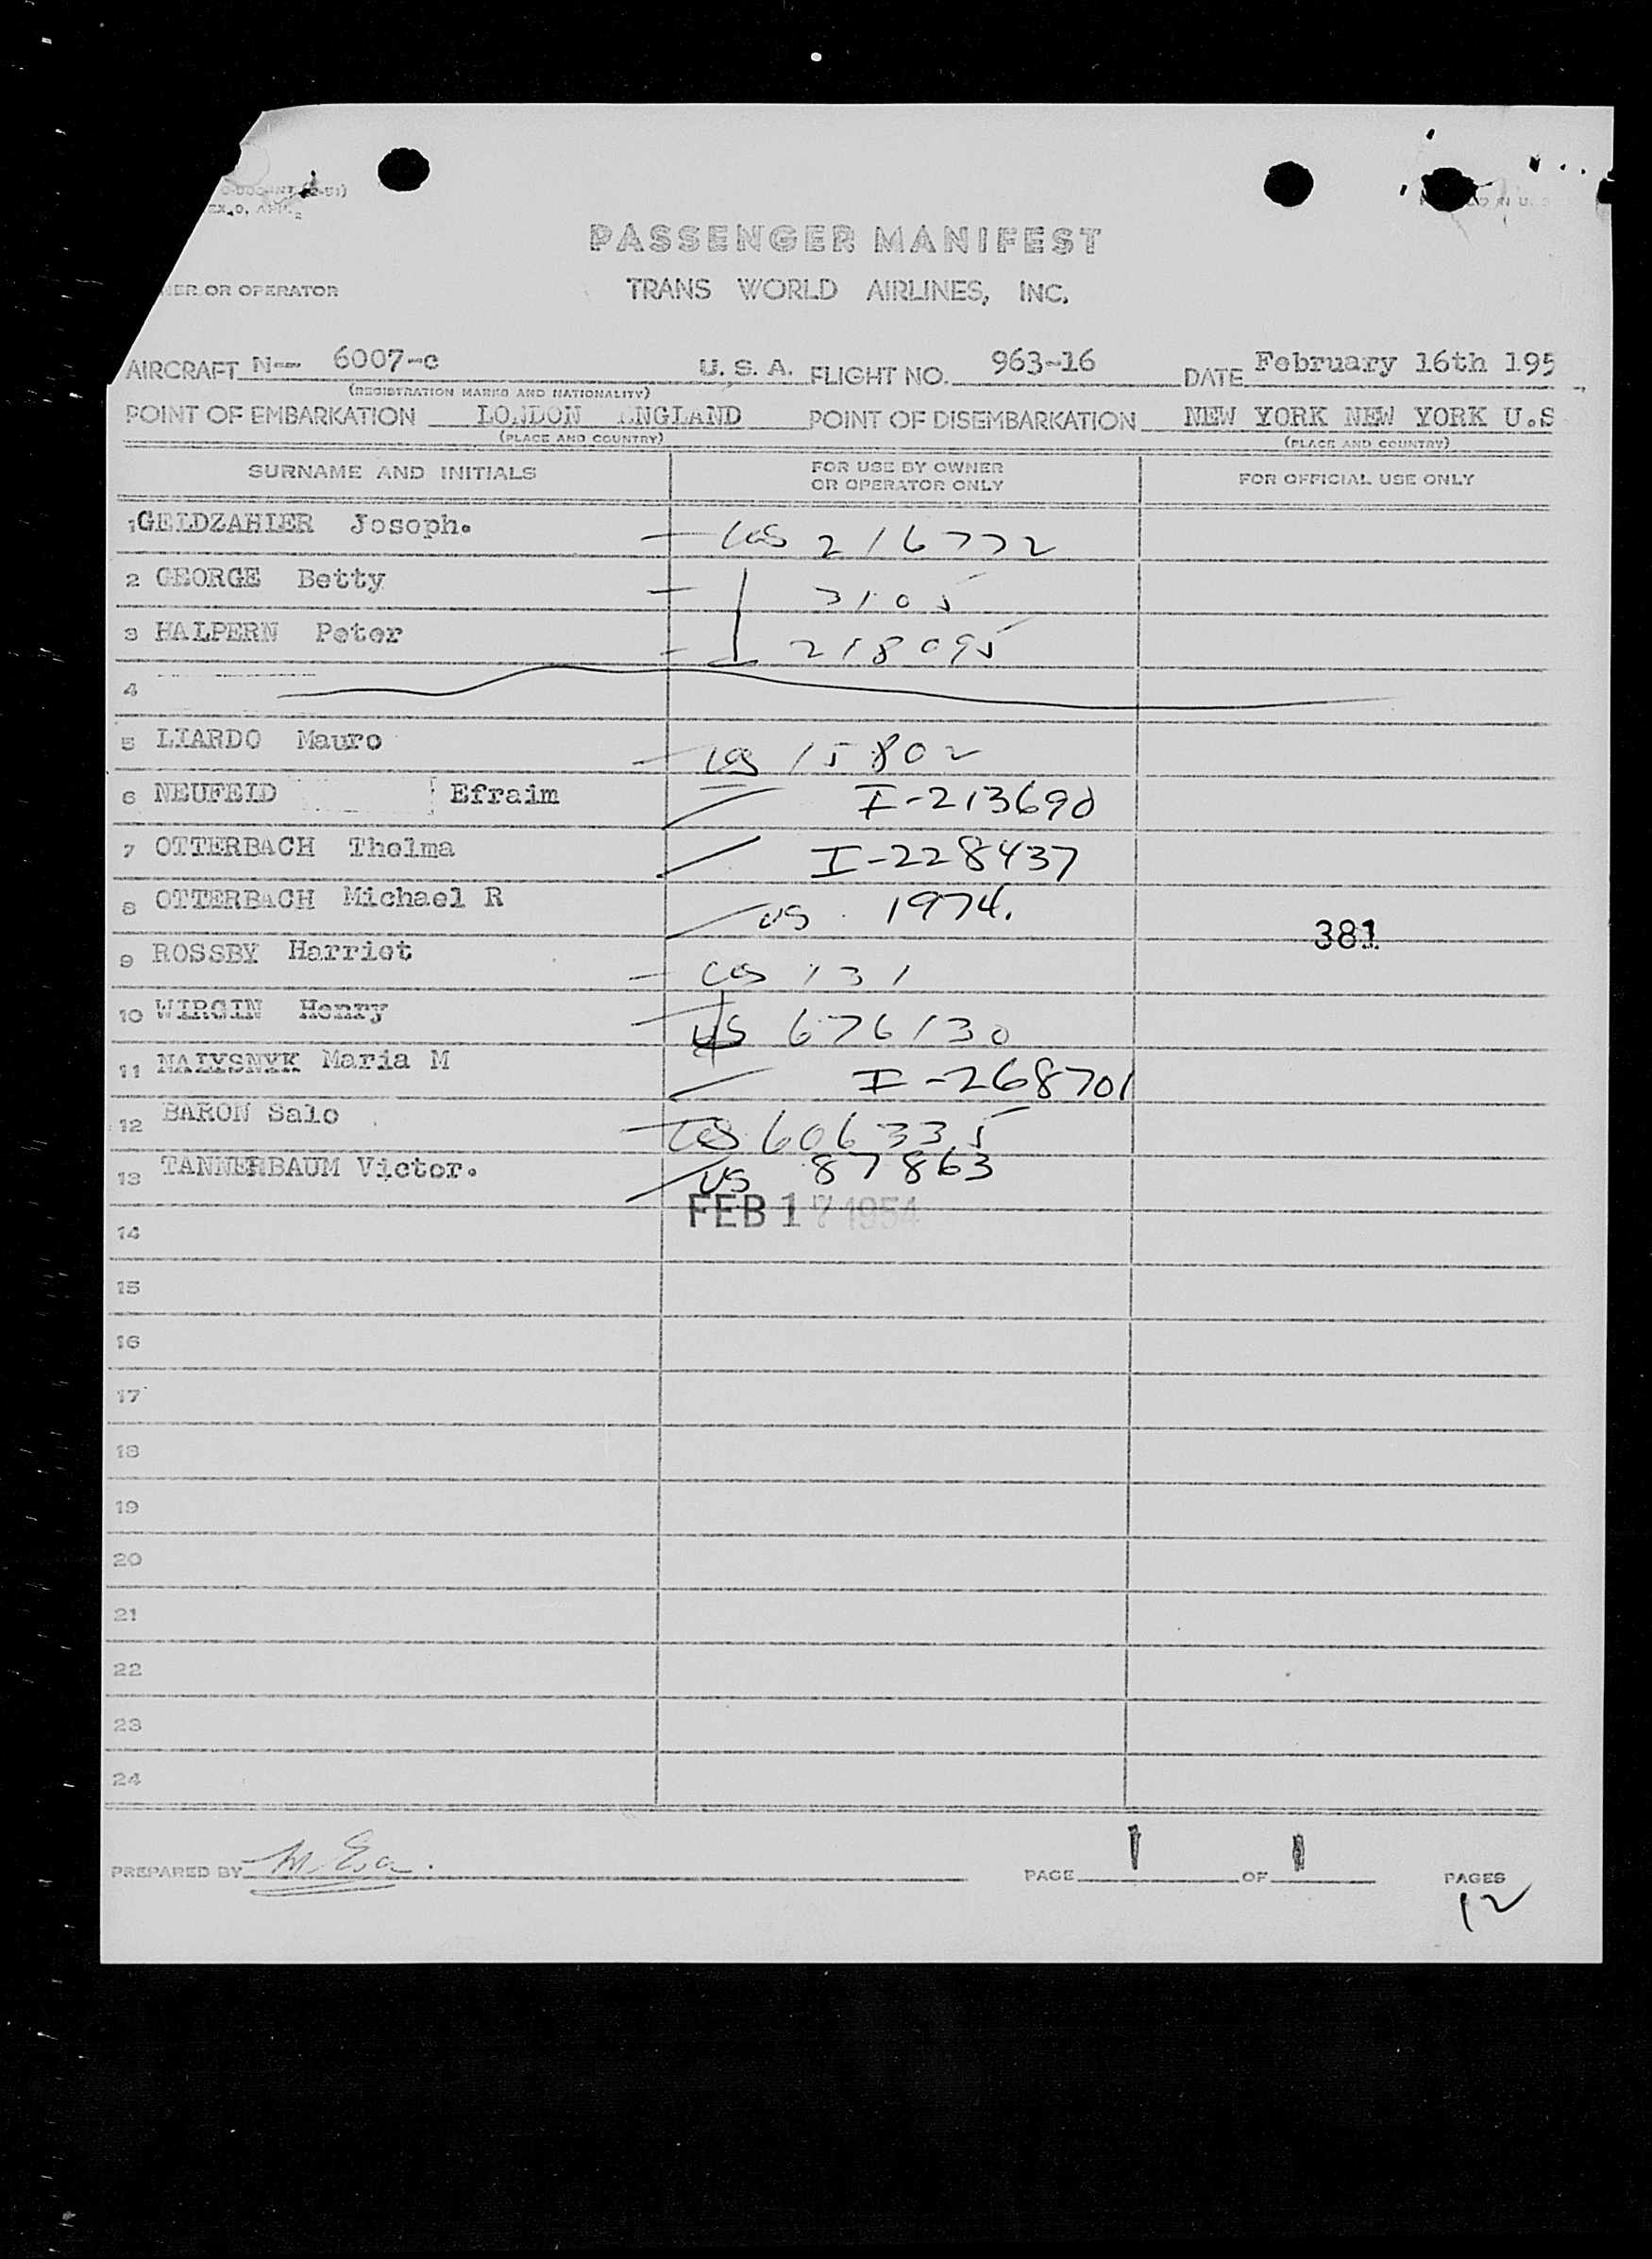 PASSENGER MANIFEST
OR OPERATOR TRANS WORLD AIRLINES, INC.
AIRCRAFT N-- 6007-c U. S. A. FLIGHT NO. 963-16 DATE February 16th 195
(REGISTRATION MARKS AND NATIONALITY)
POINT OF EMBARKATION LONDON ENGLAND POINT OF DISEMBARKATION NEW YORK NEW YORK U.S
(PLACE AND COUNTRY) (PLACE AND COUNTRY)
SURNAME AND INITIALS FOR USE BY OWNER OR OPERATOR ONLY FOR OFFICIAL USE ONLY
1 GELDZAHLER Joseph. - US 216772
2 GEORGE Betty - 3105
3 HALPERN Peter - 218095
4
5 LIARDO Mauro - US 15802
6 NEUFELD Efraim I-213690
7 OTTERBACH Thelma I-228437
8 OTTERBACH Michael R US 1974.
381
9 ROSSBY Harriet - US 131
10 WIRGIN Henry US 676130
11 NALYSNYK Maria M I-268701
12 BARON Salo US 606335
13 TANNERBAUM Victor. US 87863
FEB 17 1954
14
15
16
17
18
19
20
21
22
23
24
PREPARED BY PAGE 1 OF 1 PAGES
12